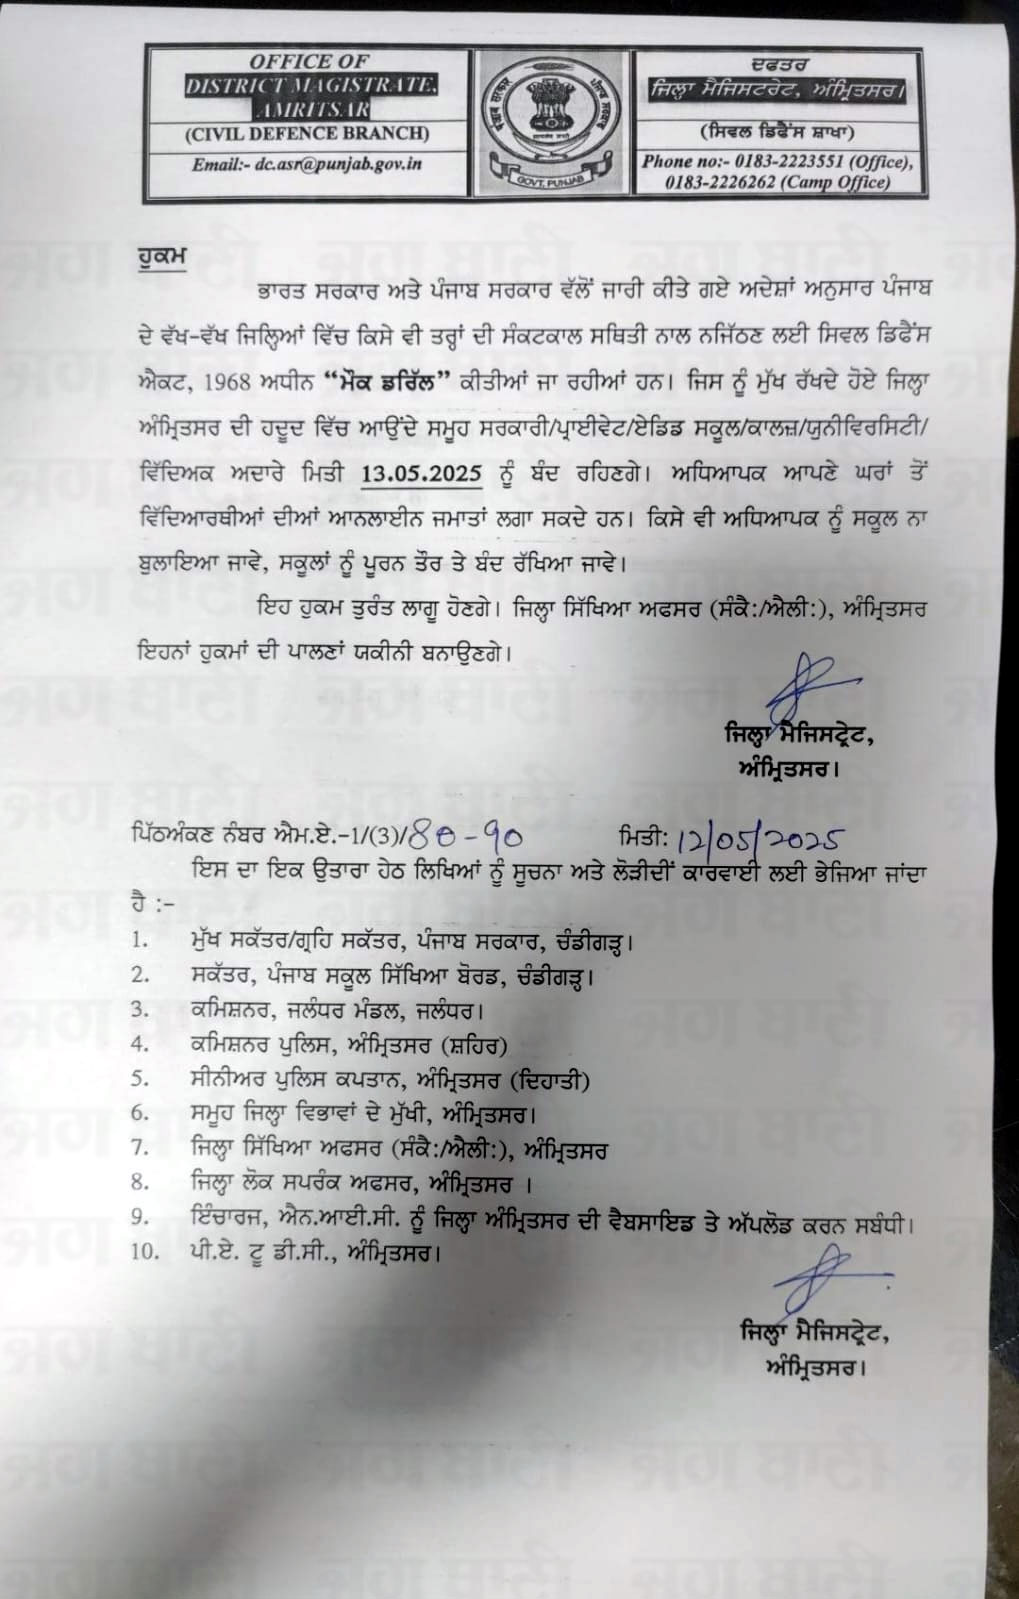 OFFICE OF
DISTRICT MAGISTRATE,
AMRITSAR
(CIVIL DEFENCE BRANCH)
Email:- dc.asr@punjab.gov.in
ਪੰਜਾਬ ਸਰਕਾਰ
GOVT. PUNJAB
ਦਫਤਰ
ਜਿਲ੍ਹਾ ਮੈਜਿਸਟਰੇਟ, ਅੰਮ੍ਰਿਤਸਰ।
(ਸਿਵਲ ਡਿਫੈਂਸ ਸ਼ਾਖਾ)
Phone no:- 0183-2223551 (Office),
0183-2226262 (Camp Office)
ਹੁਕਮ
ਭਾਰਤ ਸਰਕਾਰ ਅਤੇ ਪੰਜਾਬ ਸਰਕਾਰ ਵੱਲੋਂ ਜਾਰੀ ਕੀਤੇ ਗਏ ਅਦੇਸ਼ਾਂ ਅਨੁਸਾਰ ਪੰਜਾਬ
ਦੇ ਵੱਖ-ਵੱਖ ਜਿਲ੍ਹਿਆਂ ਵਿੱਚ ਕਿਸੇ ਵੀ ਤਰ੍ਹਾਂ ਦੀ ਸੰਕਟਕਾਲ ਸਥਿਤੀ ਨਾਲ ਨਜਿੱਠਣ ਲਈ ਸਿਵਲ ਡਿਫੈਂਸ
ਐਕਟ, 1968 ਅਧੀਨ “ਮੌਕ ਡਰਿੱਲ” ਕੀਤੀਆਂ ਜਾ ਰਹੀਆਂ ਹਨ। ਜਿਸ ਨੂੰ ਮੁੱਖ ਰੱਖਦੇ ਹੋਏ ਜਿਲ੍ਹਾ
ਅੰਮ੍ਰਿਤਸਰ ਦੀ ਹਦੂਦ ਵਿੱਚ ਆਉਂਦੇ ਸਮੂਹ ਸਰਕਾਰੀ/ਪ੍ਰਾਈਵੇਟ/ਏਡਿਡ ਸਕੂਲ/ਕਾਲਜ਼/ਯੁਨੀਵਿਰਸਿਟੀ/
ਵਿੱਦਿਅਕ ਅਦਾਰੇ ਮਿਤੀ 13.05.2025 ਨੂੰ ਬੰਦ ਰਹਿਣਗੇ। ਅਧਿਆਪਕ ਆਪਣੇ ਘਰਾਂ ਤੋਂ
ਵਿੱਦਿਆਰਥੀਆਂ ਦੀਆਂ ਆਨਲਾਈਨ ਜਮਾਤਾਂ ਲਗਾ ਸਕਦੇ ਹਨ। ਕਿਸੇ ਵੀ ਅਧਿਆਪਕ ਨੂੰ ਸਕੂਲ ਨਾ
ਬੁਲਾਇਆ ਜਾਵੇ, ਸਕੂਲਾਂ ਨੂੰ ਪੂਰਨ ਤੌਰ ਤੇ ਬੰਦ ਰੱਖਿਆ ਜਾਵੇ।
ਇਹ ਹੁਕਮ ਤੁਰੰਤ ਲਾਗੂ ਹੋਣਗੇ। ਜਿਲ੍ਹਾ ਸਿੱਖਿਆ ਅਫਸਰ (ਸੰਕੈ:/ਐਲੀ:), ਅੰਮ੍ਰਿਤਸਰ
ਇਹਨਾਂ ਹੁਕਮਾਂ ਦੀ ਪਾਲਣਾਂ ਯਕੀਨੀ ਬਨਾਉਣਗੇ।
ਜਿਲ੍ਹਾ ਮੈਜਿਸਟ੍ਰੇਟ,
ਅੰਮ੍ਰਿਤਸਰ।
ਪਿੱਠਅੰਕਣ ਨੰਬਰ ਐਮ.ਏ.-1/(3)/80-90 ਮਿਤੀ: 12/05/2025
ਇਸ ਦਾ ਇਕ ਉਤਾਰਾ ਹੇਠ ਲਿਖਿਆਂ ਨੂੰ ਸੂਚਨਾ ਅਤੇ ਲੋੜੀਦੀਂ ਕਾਰਵਾਈ ਲਈ ਭੇਜਿਆ ਜਾਂਦਾ
ਹੈ :-
1. ਮੁੱਖ ਸਕੱਤਰ/ਗ੍ਰਹਿ ਸਕੱਤਰ, ਪੰਜਾਬ ਸਰਕਾਰ, ਚੰਡੀਗੜ੍ਹ।
2. ਸਕੱਤਰ, ਪੰਜਾਬ ਸਕੂਲ ਸਿੱਖਿਆ ਬੋਰਡ, ਚੰਡੀਗੜ੍ਹ।
3. ਕਮਿਸ਼ਨਰ, ਜਲੰਧਰ ਮੰਡਲ, ਜਲੰਧਰ।
4. ਕਮਿਸ਼ਨਰ ਪੁਲਿਸ, ਅੰਮ੍ਰਿਤਸਰ (ਸ਼ਹਿਰ)
5. ਸੀਨੀਅਰ ਪੁਲਿਸ ਕਪਤਾਨ, ਅੰਮ੍ਰਿਤਸਰ (ਦਿਹਾਤੀ)
6. ਸਮੂਹ ਜਿਲ੍ਹਾ ਵਿਭਾਵਾਂ ਦੇ ਮੁੱਖੀ, ਅੰਮ੍ਰਿਤਸਰ।
7. ਜਿਲ੍ਹਾ ਸਿੱਖਿਆ ਅਫਸਰ (ਸੰਕੈ:/ਐਲੀ:), ਅੰਮ੍ਰਿਤਸਰ
8. ਜਿਲ੍ਹਾ ਲੋਕ ਸਪਰੰਕ ਅਫਸਰ, ਅੰਮ੍ਰਿਤਸਰ ।
9. ਇੰਚਾਰਜ, ਐਨ.ਆਈ.ਸੀ. ਨੂੰ ਜਿਲ੍ਹਾ ਅੰਮ੍ਰਿਤਸਰ ਦੀ ਵੈਬਸਾਇਡ ਤੇ ਅੱਪਲੋਡ ਕਰਨ ਸਬੰਧੀ।
10. ਪੀ.ਏ. ਟੂ ਡੀ.ਸੀ., ਅੰਮ੍ਰਿਤਸਰ।
ਜਿਲ੍ਹਾ ਮੈਜਿਸਟ੍ਰੇਟ,
ਅੰਮ੍ਰਿਤਸਰ।
ਜਗ ਬਾਣੀ